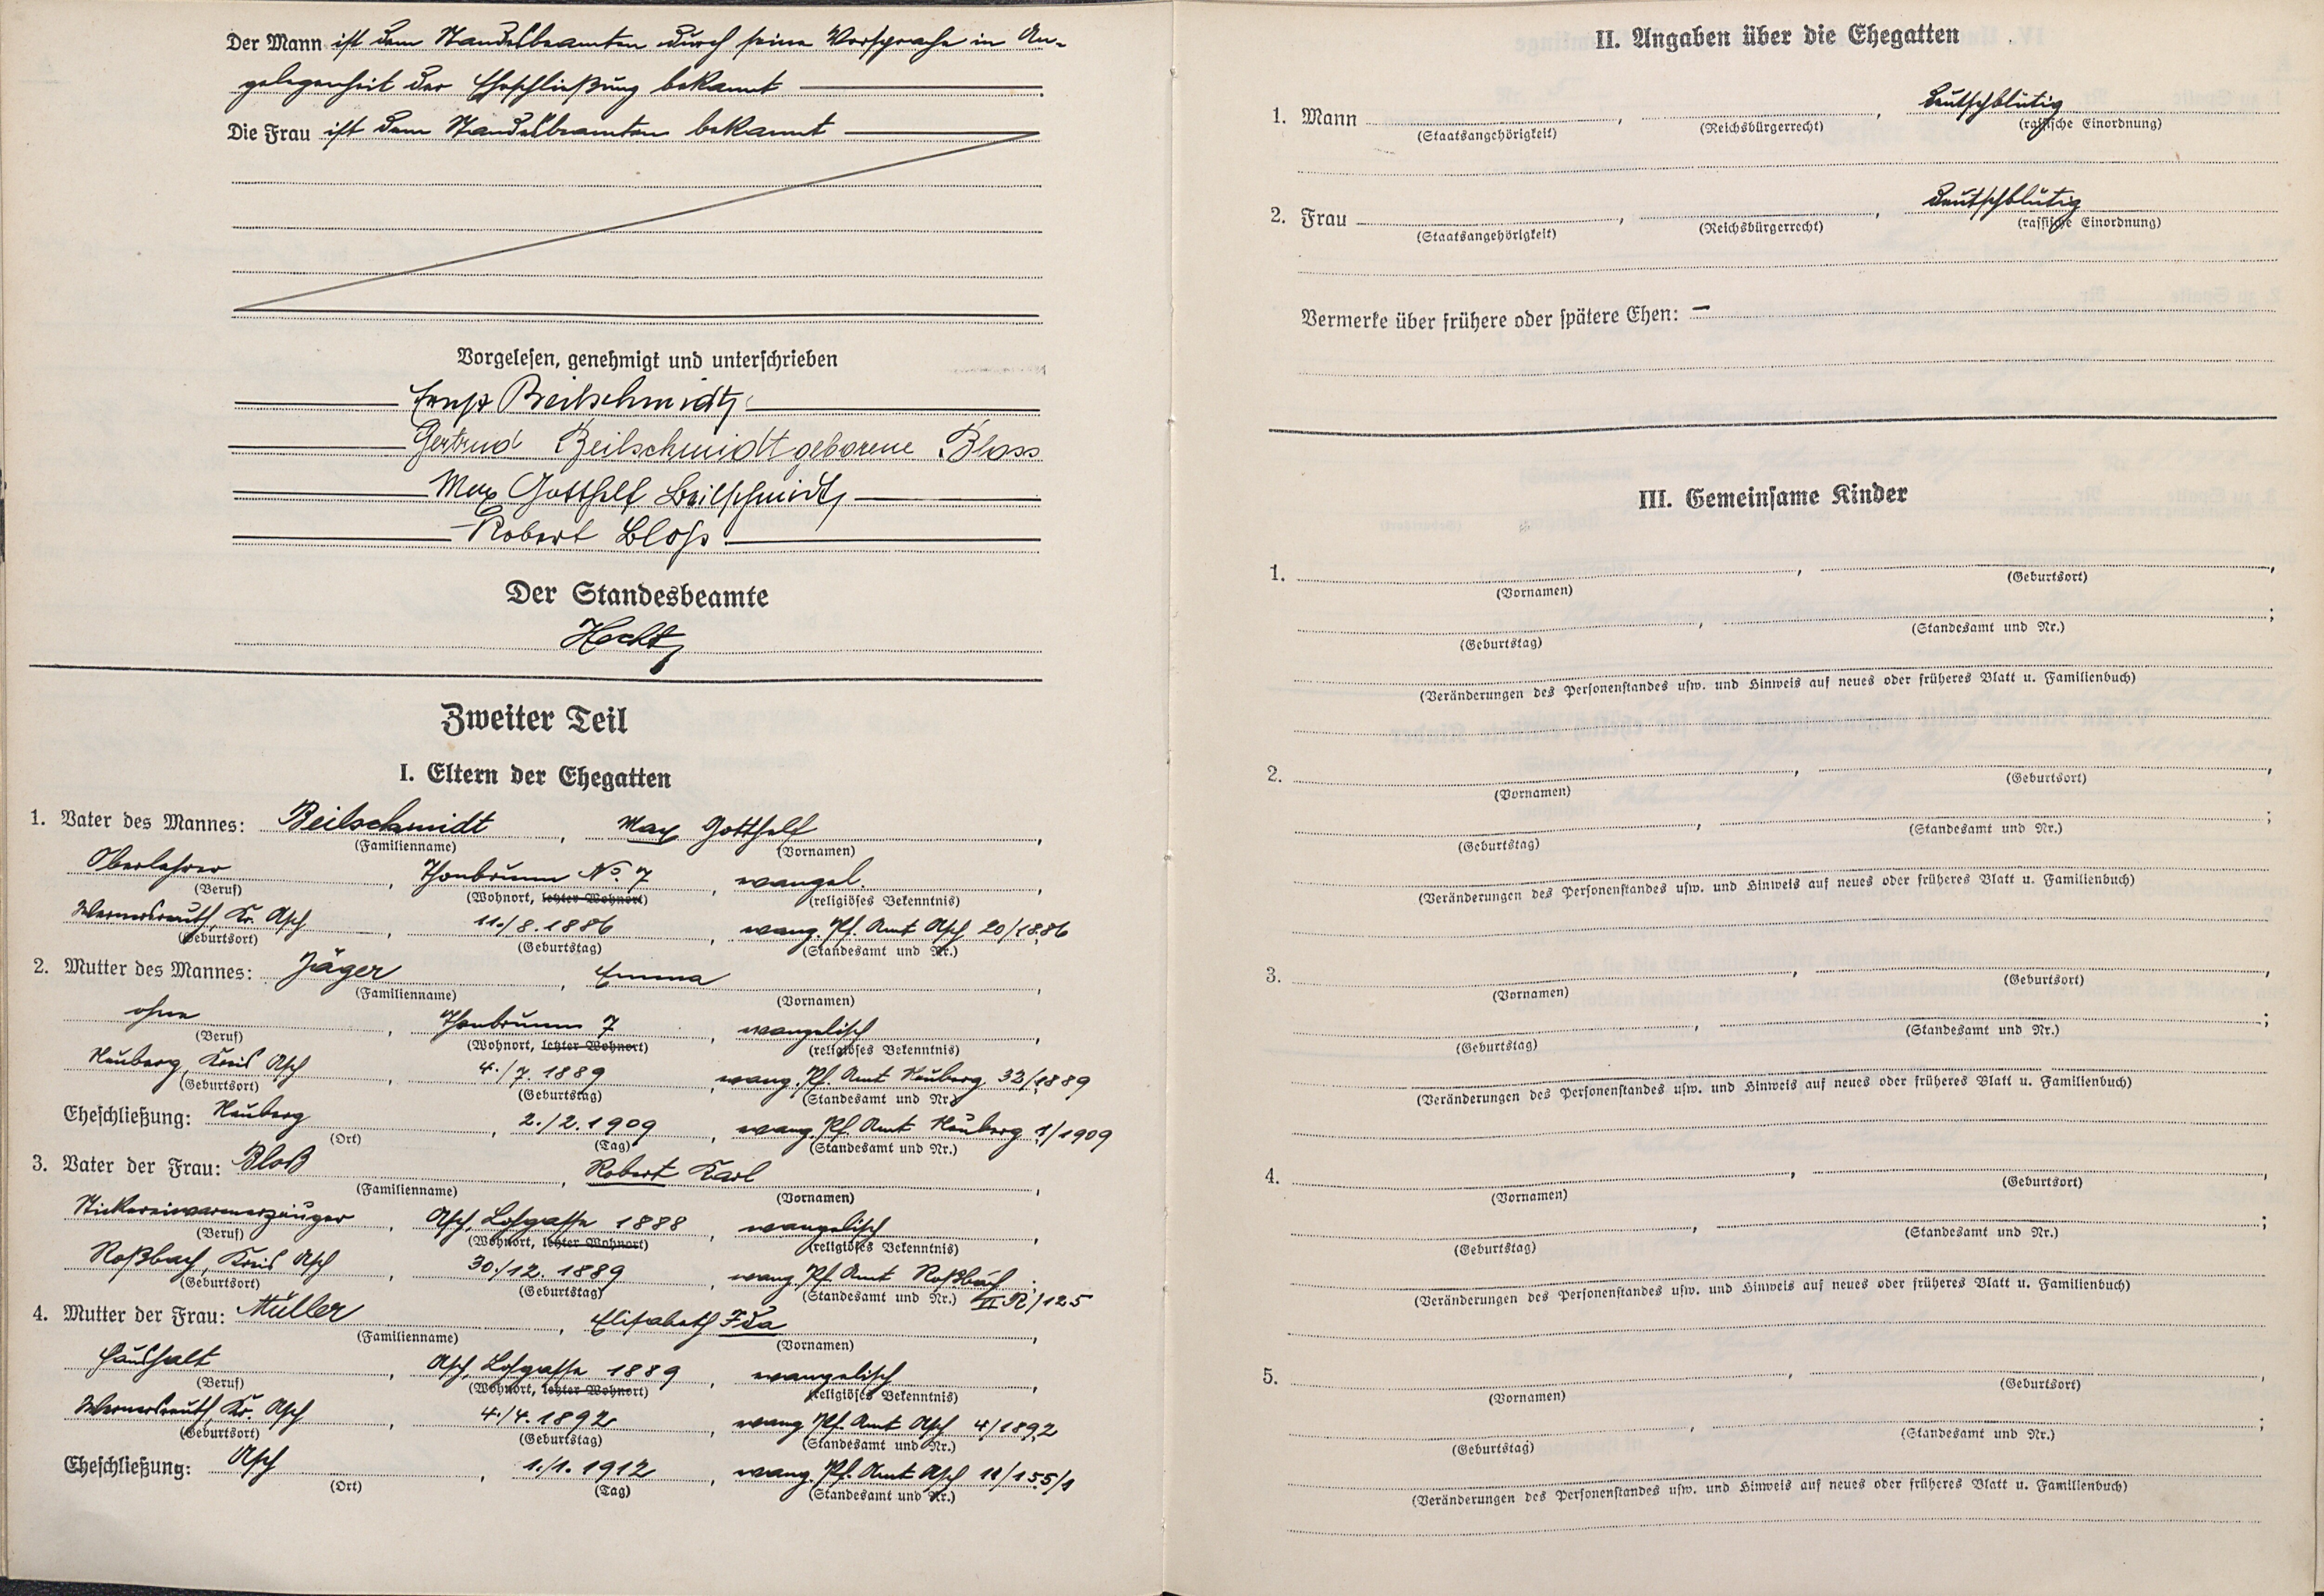 Der Mann ist dem Standesbeamten durch seine Vorsprache in An-
gelegenheit der Eheschließung bekannt
Die Frau ist dem Standesbeamten bekannt
Vorgelesen, genehmigt und unterschrieben
Ernst Beilschmidt
Gertrud Beilschmidt geborene Bloss
Max Gotthelf Beilschmidt
Robert Bloss
Der Standesbeamte
Hecht
Zweiter Teil
I. Eltern der Ehegatten
1. Vater des Mannes: Beilschmidt, Max Gotthelf,
(Familienname) (Vornamen)
Oberlehrer, Thonbrunn No. 7, evangel.,
(Beruf) (Wohnort, letzter Wohnort) (religiöses Bekenntnis)
Wernersreuth, Kr. Asch, 11./8.1886, evang. Pf. Amt Asch 20/1886
(Geburtsort) (Geburtstag) (Standesamt und Nr.)
2. Mutter des Mannes: Jäger, Emma,
(Familienname) (Vornamen)
ohne, Thonbrunn 7, evangelisch,
(Beruf) (Wohnort, letzter Wohnort) (religiöses Bekenntnis)
Neuberg, Kreis Asch, 4./7.1889, evang. Pf. Amt Neuberg 32/1889
(Geburtsort) (Geburtstag) (Standesamt und Nr.)
Eheschließung: Neuberg, 2./2.1909, evang. Pf. Amt Neuberg 1/1909
(Ort) (Tag) (Standesamt und Nr.)
3. Vater der Frau: Bloß, Robert Karl,
(Familienname) (Vornamen)
Stickereiwarenerzeuger, Asch, Losgasse 1888, evangelisch,
(Beruf) (Wohnort, letzter Wohnort) (religiöses Bekenntnis)
Roßbach, Kreis Asch, 30./12.1889, evang. Pf. Amt Roßbach;
(Geburtsort) (Geburtstag) (Standesamt und Nr.) II R/125
4. Mutter der Frau: Müller, Elisabeth Ida,
(Familienname) (Vornamen)
Haushalt, Asch, Losgasse 1889, evangelisch,
(Beruf) (Wohnort, letzter Wohnort) (religiöses Bekenntnis)
Wernersreuth, Kr. Asch, 4./4.1892, evang. Pf. Amt Asch 4/1892
(Geburtsort) (Geburtstag) (Standesamt und Nr.)
Eheschließung: Asch, 1./1.1912, evang. Pf. Amt Asch 11/155/1
(Ort) (Tag) (Standesamt und Nr.)
II. Angaben über die Ehegatten
1. Mann , , deutschblütig
(Staatsangehörigkeit) (Reichsbürgerrecht) (rassische Einordnung)
2. Frau , , deutschblütig
(Staatsangehörigkeit) (Reichsbürgerrecht) (rassische Einordnung)
Vermerke über frühere oder spätere Ehen: –
III. Gemeinsame Kinder
1. , ,
(Vornamen) (Geburtsort)
, ;
(Geburtstag) (Standesamt und Nr.)
(Veränderungen des Personenstandes usw. und Hinweis auf neues oder früheres Blatt u. Familienbuch)
2. , ,
(Vornamen) (Geburtsort)
, ;
(Geburtstag) (Standesamt und Nr.)
(Veränderungen des Personenstandes usw. und Hinweis auf neues oder früheres Blatt u. Familienbuch)
3. , ,
(Vornamen) (Geburtsort)
, ;
(Geburtstag) (Standesamt und Nr.)
(Veränderungen des Personenstandes usw. und Hinweis auf neues oder früheres Blatt u. Familienbuch)
4. , ,
(Vornamen) (Geburtsort)
, ;
(Geburtstag) (Standesamt und Nr.)
(Veränderungen des Personenstandes usw. und Hinweis auf neues oder früheres Blatt u. Familienbuch)
5. , ,
(Vornamen) (Geburtsort)
, ;
(Geburtstag) (Standesamt und Nr.)
(Veränderungen des Personenstandes usw. und Hinweis auf neues oder früheres Blatt u. Familienbuch)